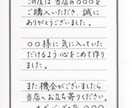 この度は当店の〇〇〇を
ご購入いただき、誠に
ありがとうございました。
〇〇様に気に入っていた
だけるよう心をこめて作り
ました。
また機会がございましたら
当店へお立ち寄りください。